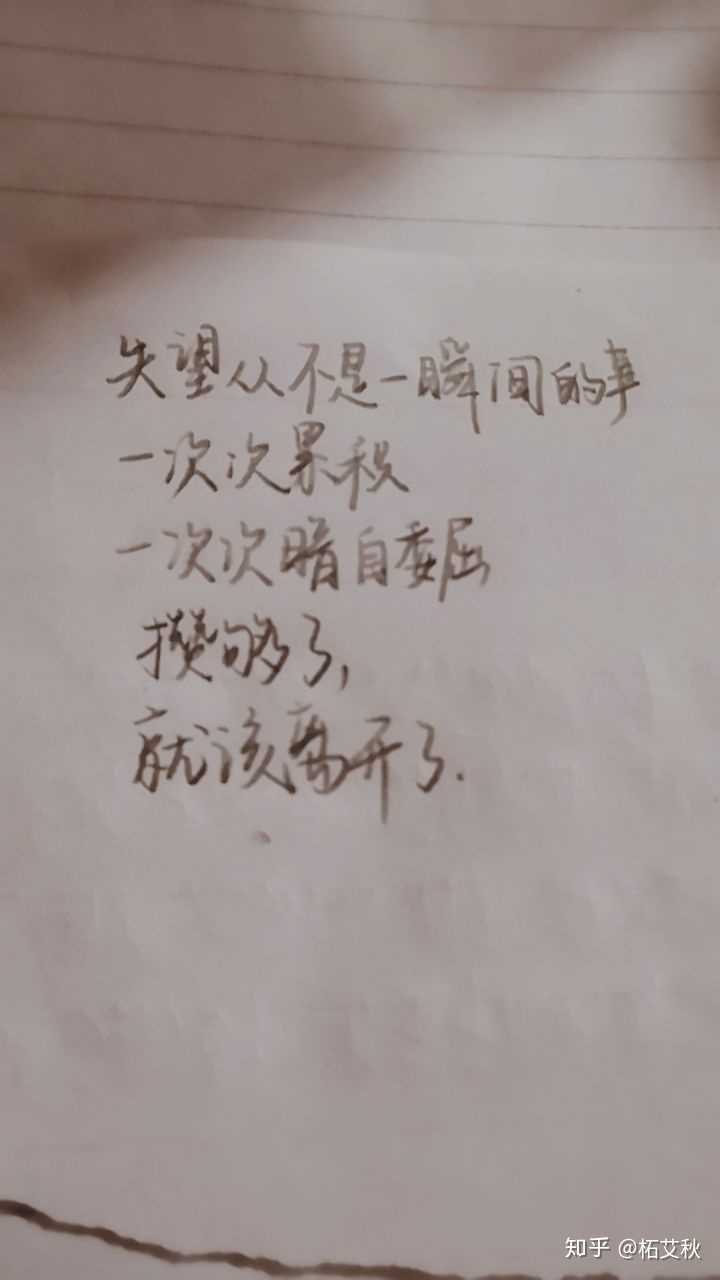 失望从不是一瞬间的事
一次次累积
一次次暗自委屈
攒够了，
就该离开了.
知乎 @柘艾秋